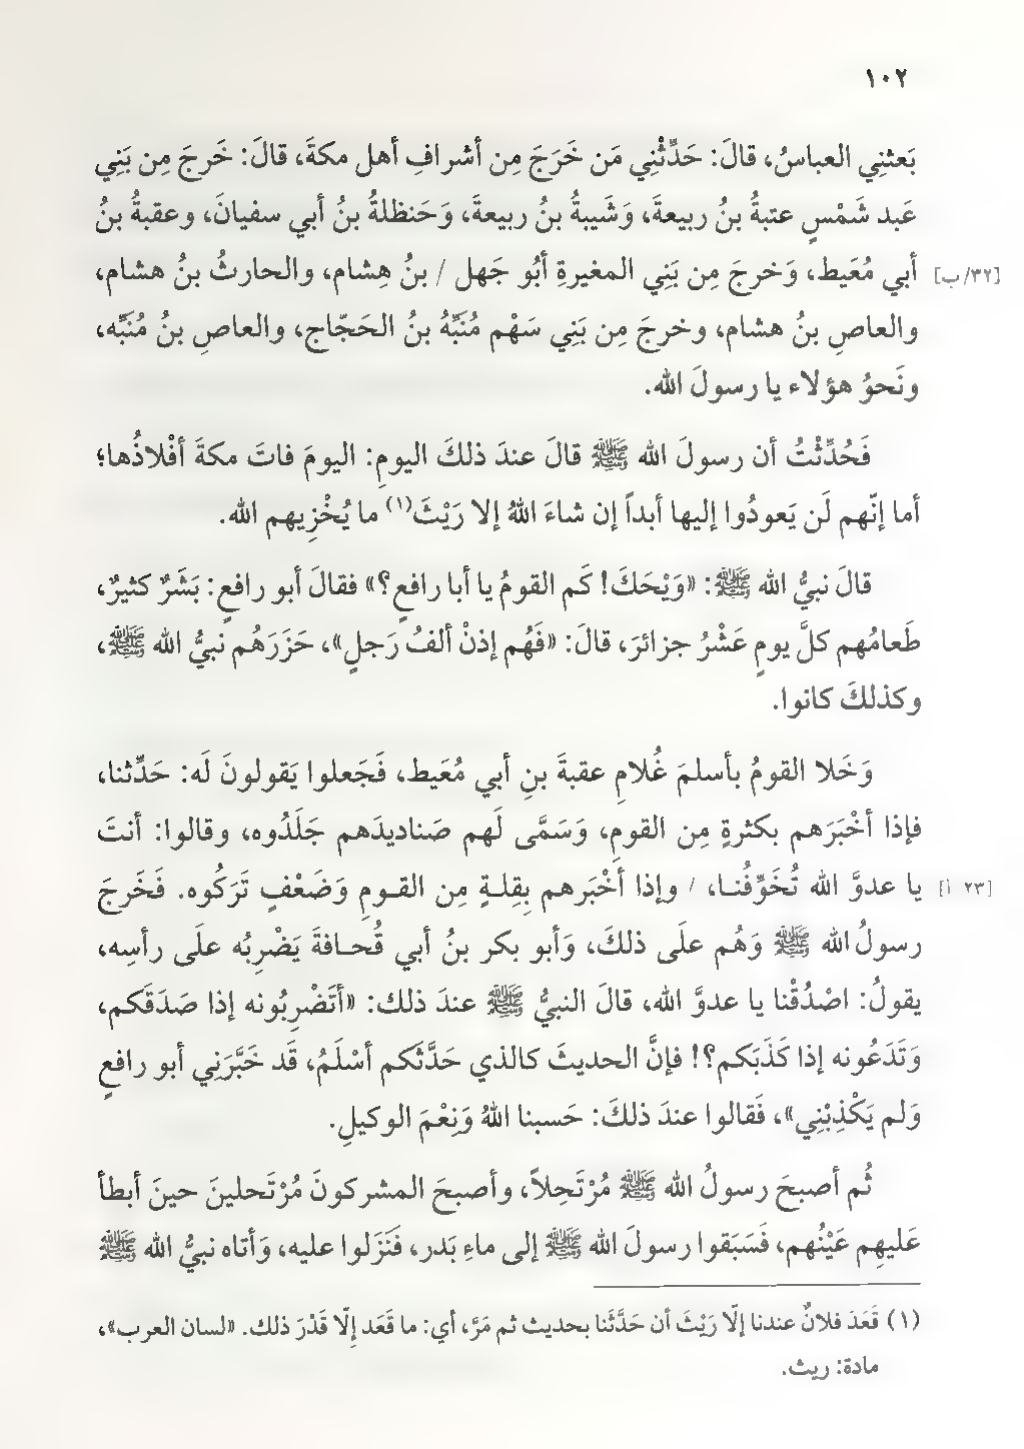 ١٠٢
بَعثنِي العباسُ، قالَ: حَدِّثْنِي مَن خَرَجَ مِن أشرافِ أهل مكةَ، قالَ: خَرجَ مِن بَنِي
عَبد شَمْسٍ عتبةُ بنُ ربيعةَ، وَشَيبةُ بنُ ربيعةَ، وَحَنظلةُ بنُ أبي سفيانَ، وعقبةُ بنُ
أبي مُعَيط، وَخرجَ مِن بَنِي المغيرةِ أبُو جَهل / بنُ هِشام، والحارثُ بنُ هشام، [٣٢/ب]
والعاصِ بنُ هشام، وخرجَ مِن بَنِي سَهْم مُنَبِّهُ بنُ الحَجّاج، والعاصِ بنُ مُنَبِّه،
ونَحوُ هؤلاء يا رسولَ الله.
فَحُدِّثْتُ أن رسولَ الله ﷺ قالَ عندَ ذلكَ اليومِ: اليومَ فاتَ مكةَ أفْلاذُها؛
أما إنّهم لَن يَعودُوا إليها أبداً إن شاءَ اللهُ إلا رَيْثَ(١) ما يُخْزِيهم الله.
قالَ نبيُّ الله ﷺ: «وَيْحَكَ! كَم القومُ يا أبا رافعٍ؟» فقالَ أبو رافعٍ: بَشَرٌ كثيرٌ،
طَعامُهم كلَّ يومٍ عَشْرُ جزائرَ، قالَ: «فَهُم إذنْ ألفُ رَجلٍ»، حَزَرَهُم نبيُّ الله ﷺ،
وكذلكَ كانوا.
وَخَلا القومُ بأسلمَ غُلامِ عقبةَ بنِ أبي مُعَيط، فَجَعلوا يَقولونَ لَه: حَدِّثنا،
فإذا أخْبَرَهم بكثرةٍ مِن القومِ، وَسَمَّى لَهم صَناديدَهم جَلَدُوه، وقالوا: أنتَ
يا عدوَّ الله تُخَوِّفُنـا، / وإذا أخْبَرهم بِقِلـةٍ مِن القـومِ وَضَعْفٍ تَرَكُوه. فَخَرجَ [٢٣ أ]
رسولُ الله ﷺ وَهُم علَى ذلكَ، وَأبو بكر بنُ أبي قُحـافةَ يَضْرِبُه علَى رأسِه،
يقولُ: اصْدُقْنا يا عدوَّ الله، قالَ النبيُّ ﷺ عندَ ذلك: «أتَضْرِبُونه إذا صَدَقَكم،
وَتَدَعُونه إذا كَذَبَكم؟! فإنَّ الحديثَ كالذي حَدَّثَكم أسْلَمُ، قَد خَبَّرَنِي أبو رافعٍ
وَلم يَكْذِبْنِي»، فَقالوا عندَ ذلكَ: حَسبنا اللهُ وَنِعْمَ الوكيلِ.
ثُم أصبحَ رسولُ الله ﷺ مُرْتَحِلاً، وأصبحَ المشركونَ مُرْتَحلينَ حينَ أبطأ
عَليهِم عَيْنُهم، فَسَبَقوا رسولَ الله ﷺ إلى ماءِ بَدر، فَنَزَلوا عليه، وَأتاه نبيُّ الله ﷺ
(١) قَعَدَ فلانٌ عندنا إلّا رَيْثَ أن حَدَّثَنا بحديث ثم مَرَّ، أي: ما قَعَد إلّا قَدْرَ ذلك. «لسان العرب»،
مادة: ريث.